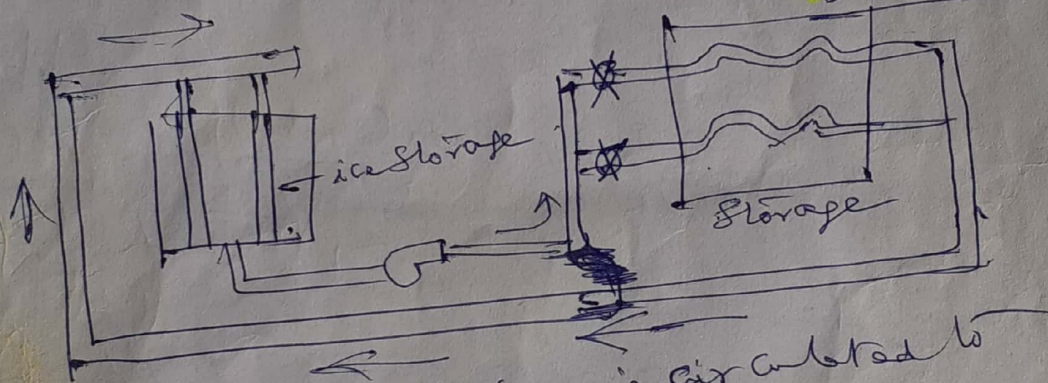 ice storage
storage
circulated to